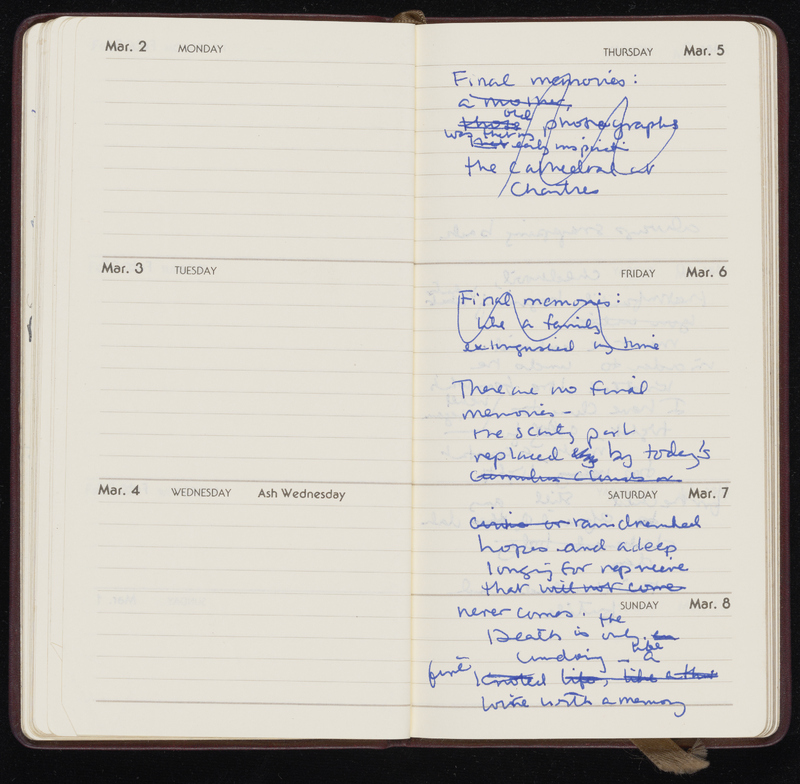 Mar. 2 MONDAY
Mar. 3 TUESDAY
Mar. 4 WEDNESDAY Ash Wednesday
THURSDAY Mar. 5
Final memories:
a mother,
old
those photographs
was that its
that early inspirati
the Cathedral at
Chartres
FRIDAY Mar. 6
Final memories:
like a family
extinguished by time
There are no final
memories –
the scanty past
replaced by by today's
Cumulus clouds or
SATURDAY Mar. 7
or raindrenched
hopes and a deep
longing for reprieve
that will not come
SUNDAY Mar. 8
never comes.
the
Death is only
undoing – like a
fine knotted life, like a that
wire with a memory